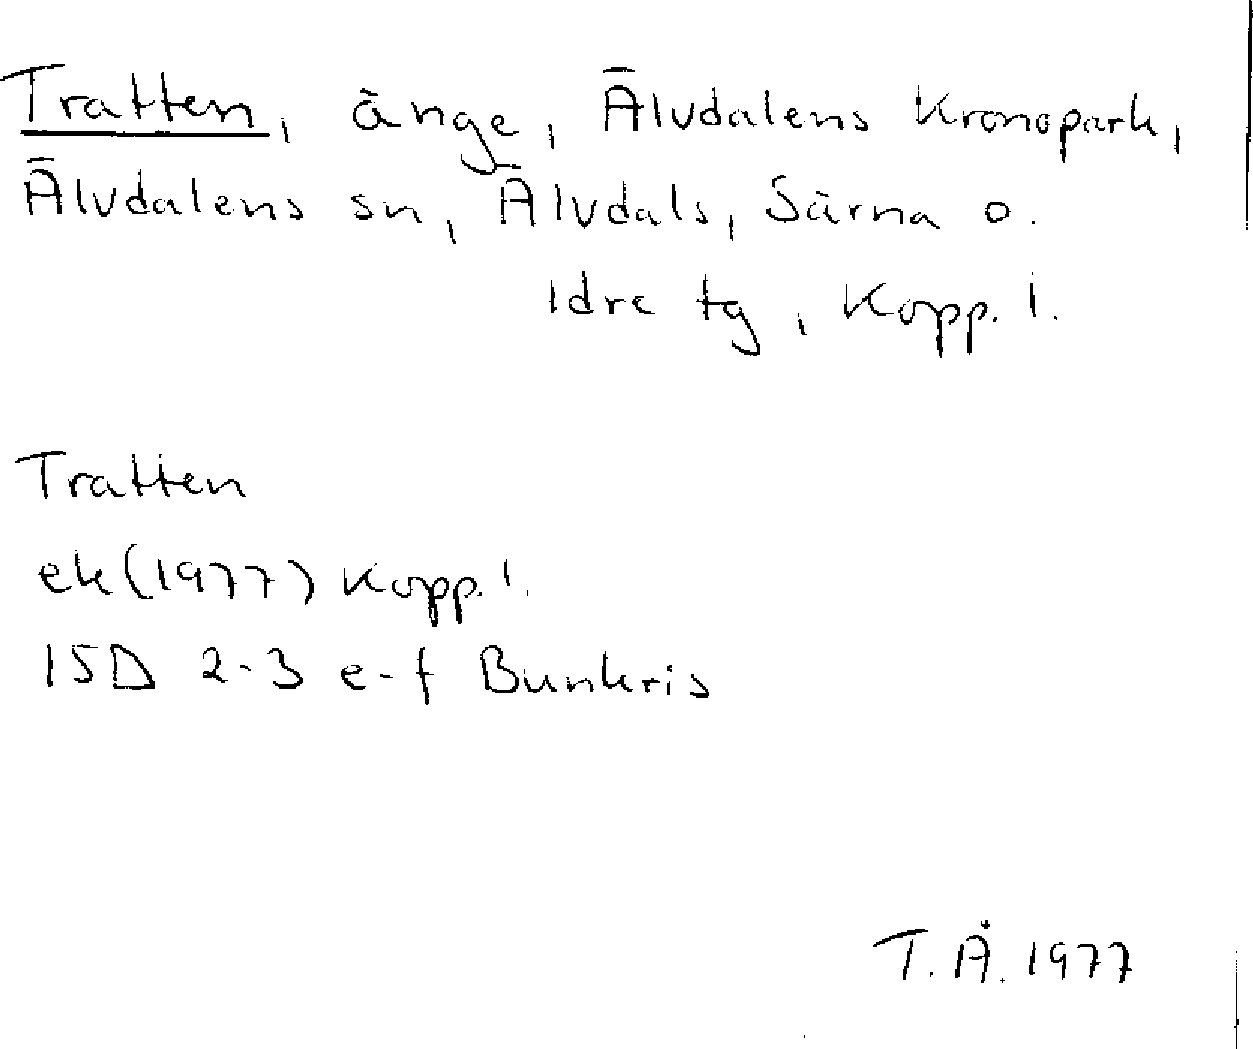 Tratten, änge, Älvdalens Kronopark,
Älvdalens sn, Älvdals, Särna o.
Idre tg, Kopp. l.
Tratten
ek (1977) Kopp. l.
15D 2-3 e-f Bunkris
T. Å. 1977